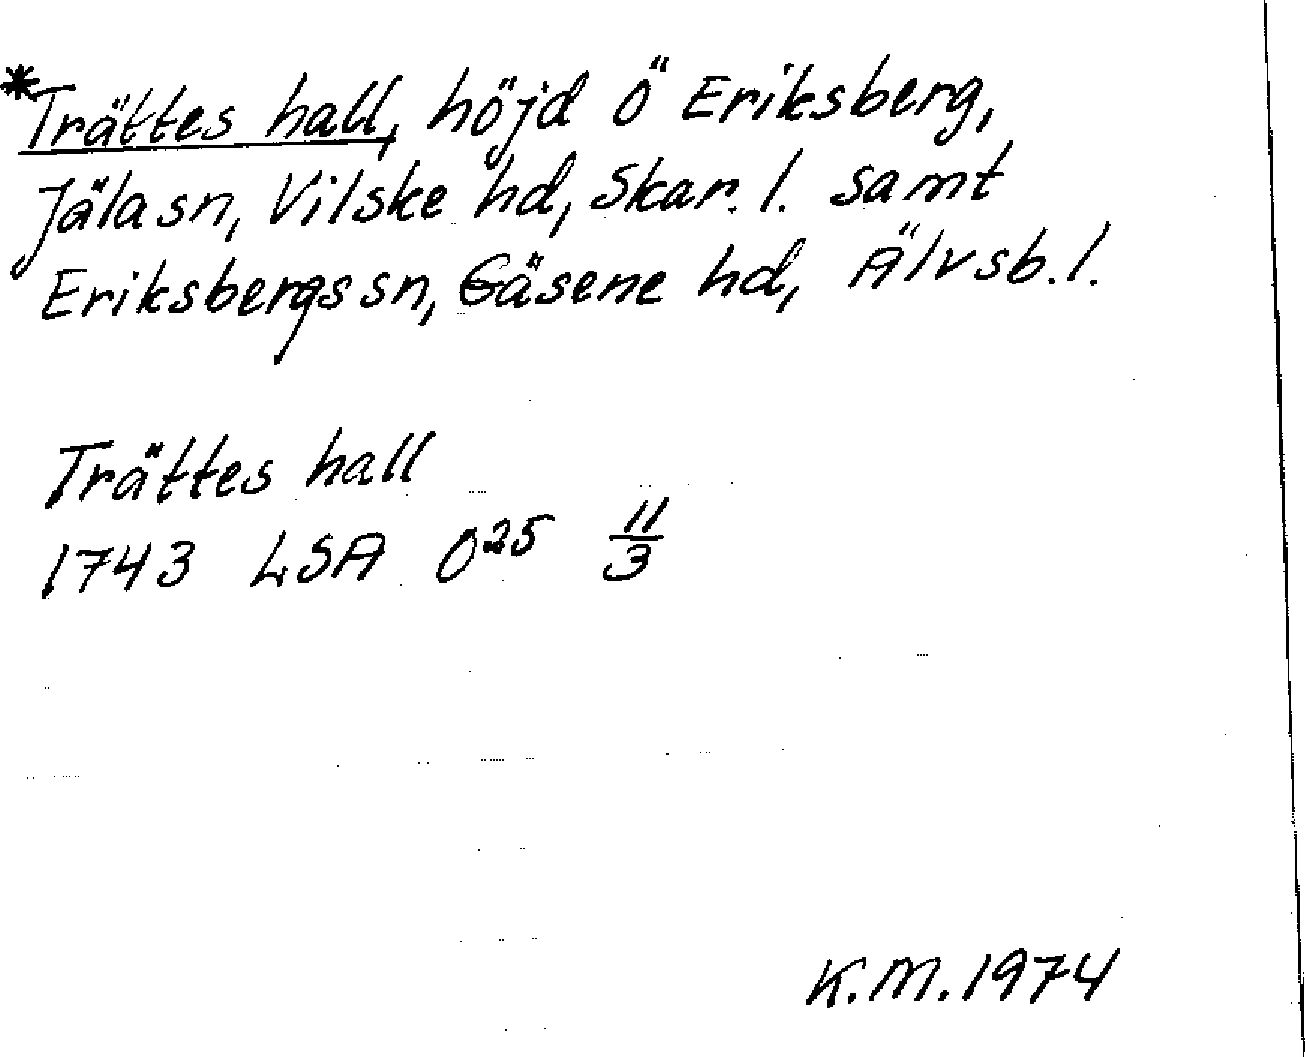 *Trättes hall, höjd Ö Eriksberg,
Jäla sn, Vilske hd, Skar. l. samt
Eriksbergs sn, Gäsene hd, Älvsb. l.
Trättes hall
1743 LSA O25 11/3
K.M. 1974